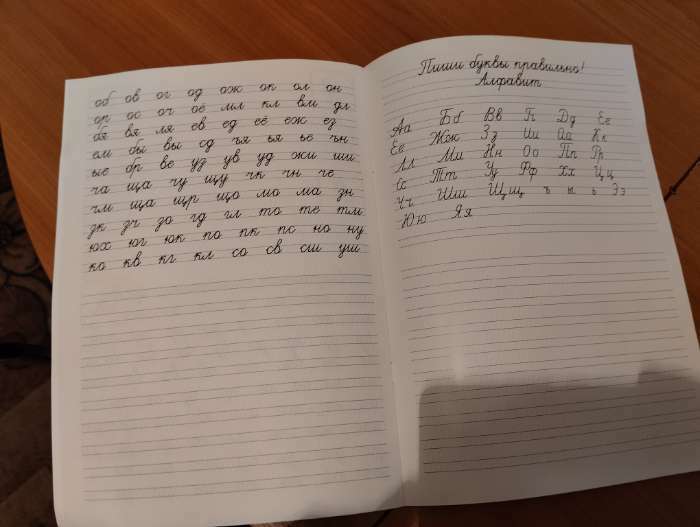 об ов ог од ож оп ол он
ор ос оч оё мл кл вм дл
бя вя ля ев ед её еж ез
ем бы вы сд ъя ья ье ън
ые бр ве уз ув уд жи ши
ча ща чу щу чк чн че
чм ща щр що мо ма зн
зк зч зо гд гл то те тм
юх юг юк по пк пс но ну
ко кв кг кл со св сш уш
Пиши буквы правильно!
Алфавит
Аа Бб Вв Гг Дд Ее
Ёё Жж Зз Ии Йй Кк
Лл Мм Нн Оо Пп Рр
Сс Тт Уу Фф Хх Цц
Чч Шш Щщ ъ ы ь Ээ
Юю Яя